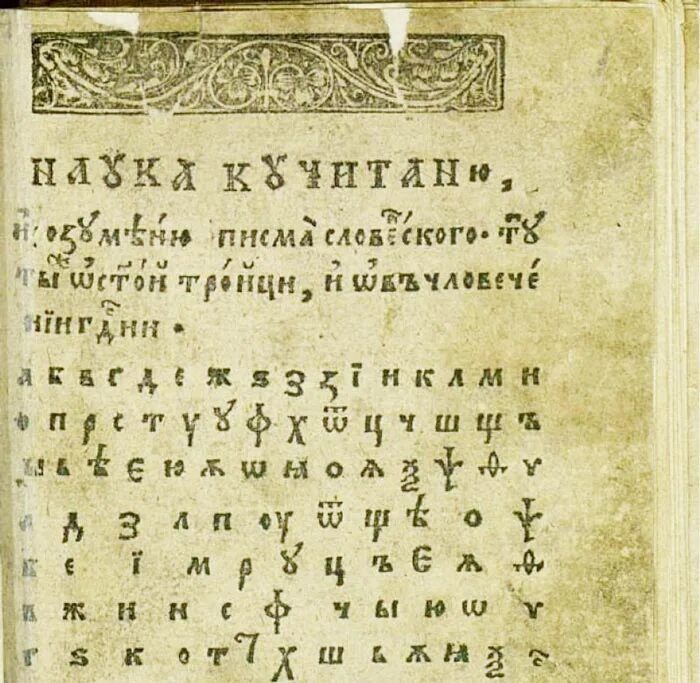 НАꙊКА КꙊЧИТАНЮ,
и҆ розꙋмѣ́ню писма̀ словеⷩ҇ского. тꙋ
тыⷤ ѡ҆ ст҃о́й тро́йци, и҆ ѡ҆ въчловече́
нїи гдⷭ҇ни.
а б в г д е ж ѕ з ꙁ ї и к л м н
о п р с т у ꙋ ф х ѿ ц ч ш щ ъ
ы ь ѣ є ю ѫ ѡ ꙗ о ѧ ѯ ѱ ѳ ѵ
а д з л п оу ѿ щ ѣ о ѱ
б е ї м р ꙋ ц ъ є ѧ ѳ
в ж и н с ф ч ы ю ѡ ѵ
г ѕ к о т х ш ь ѫ ꙗ ѯ